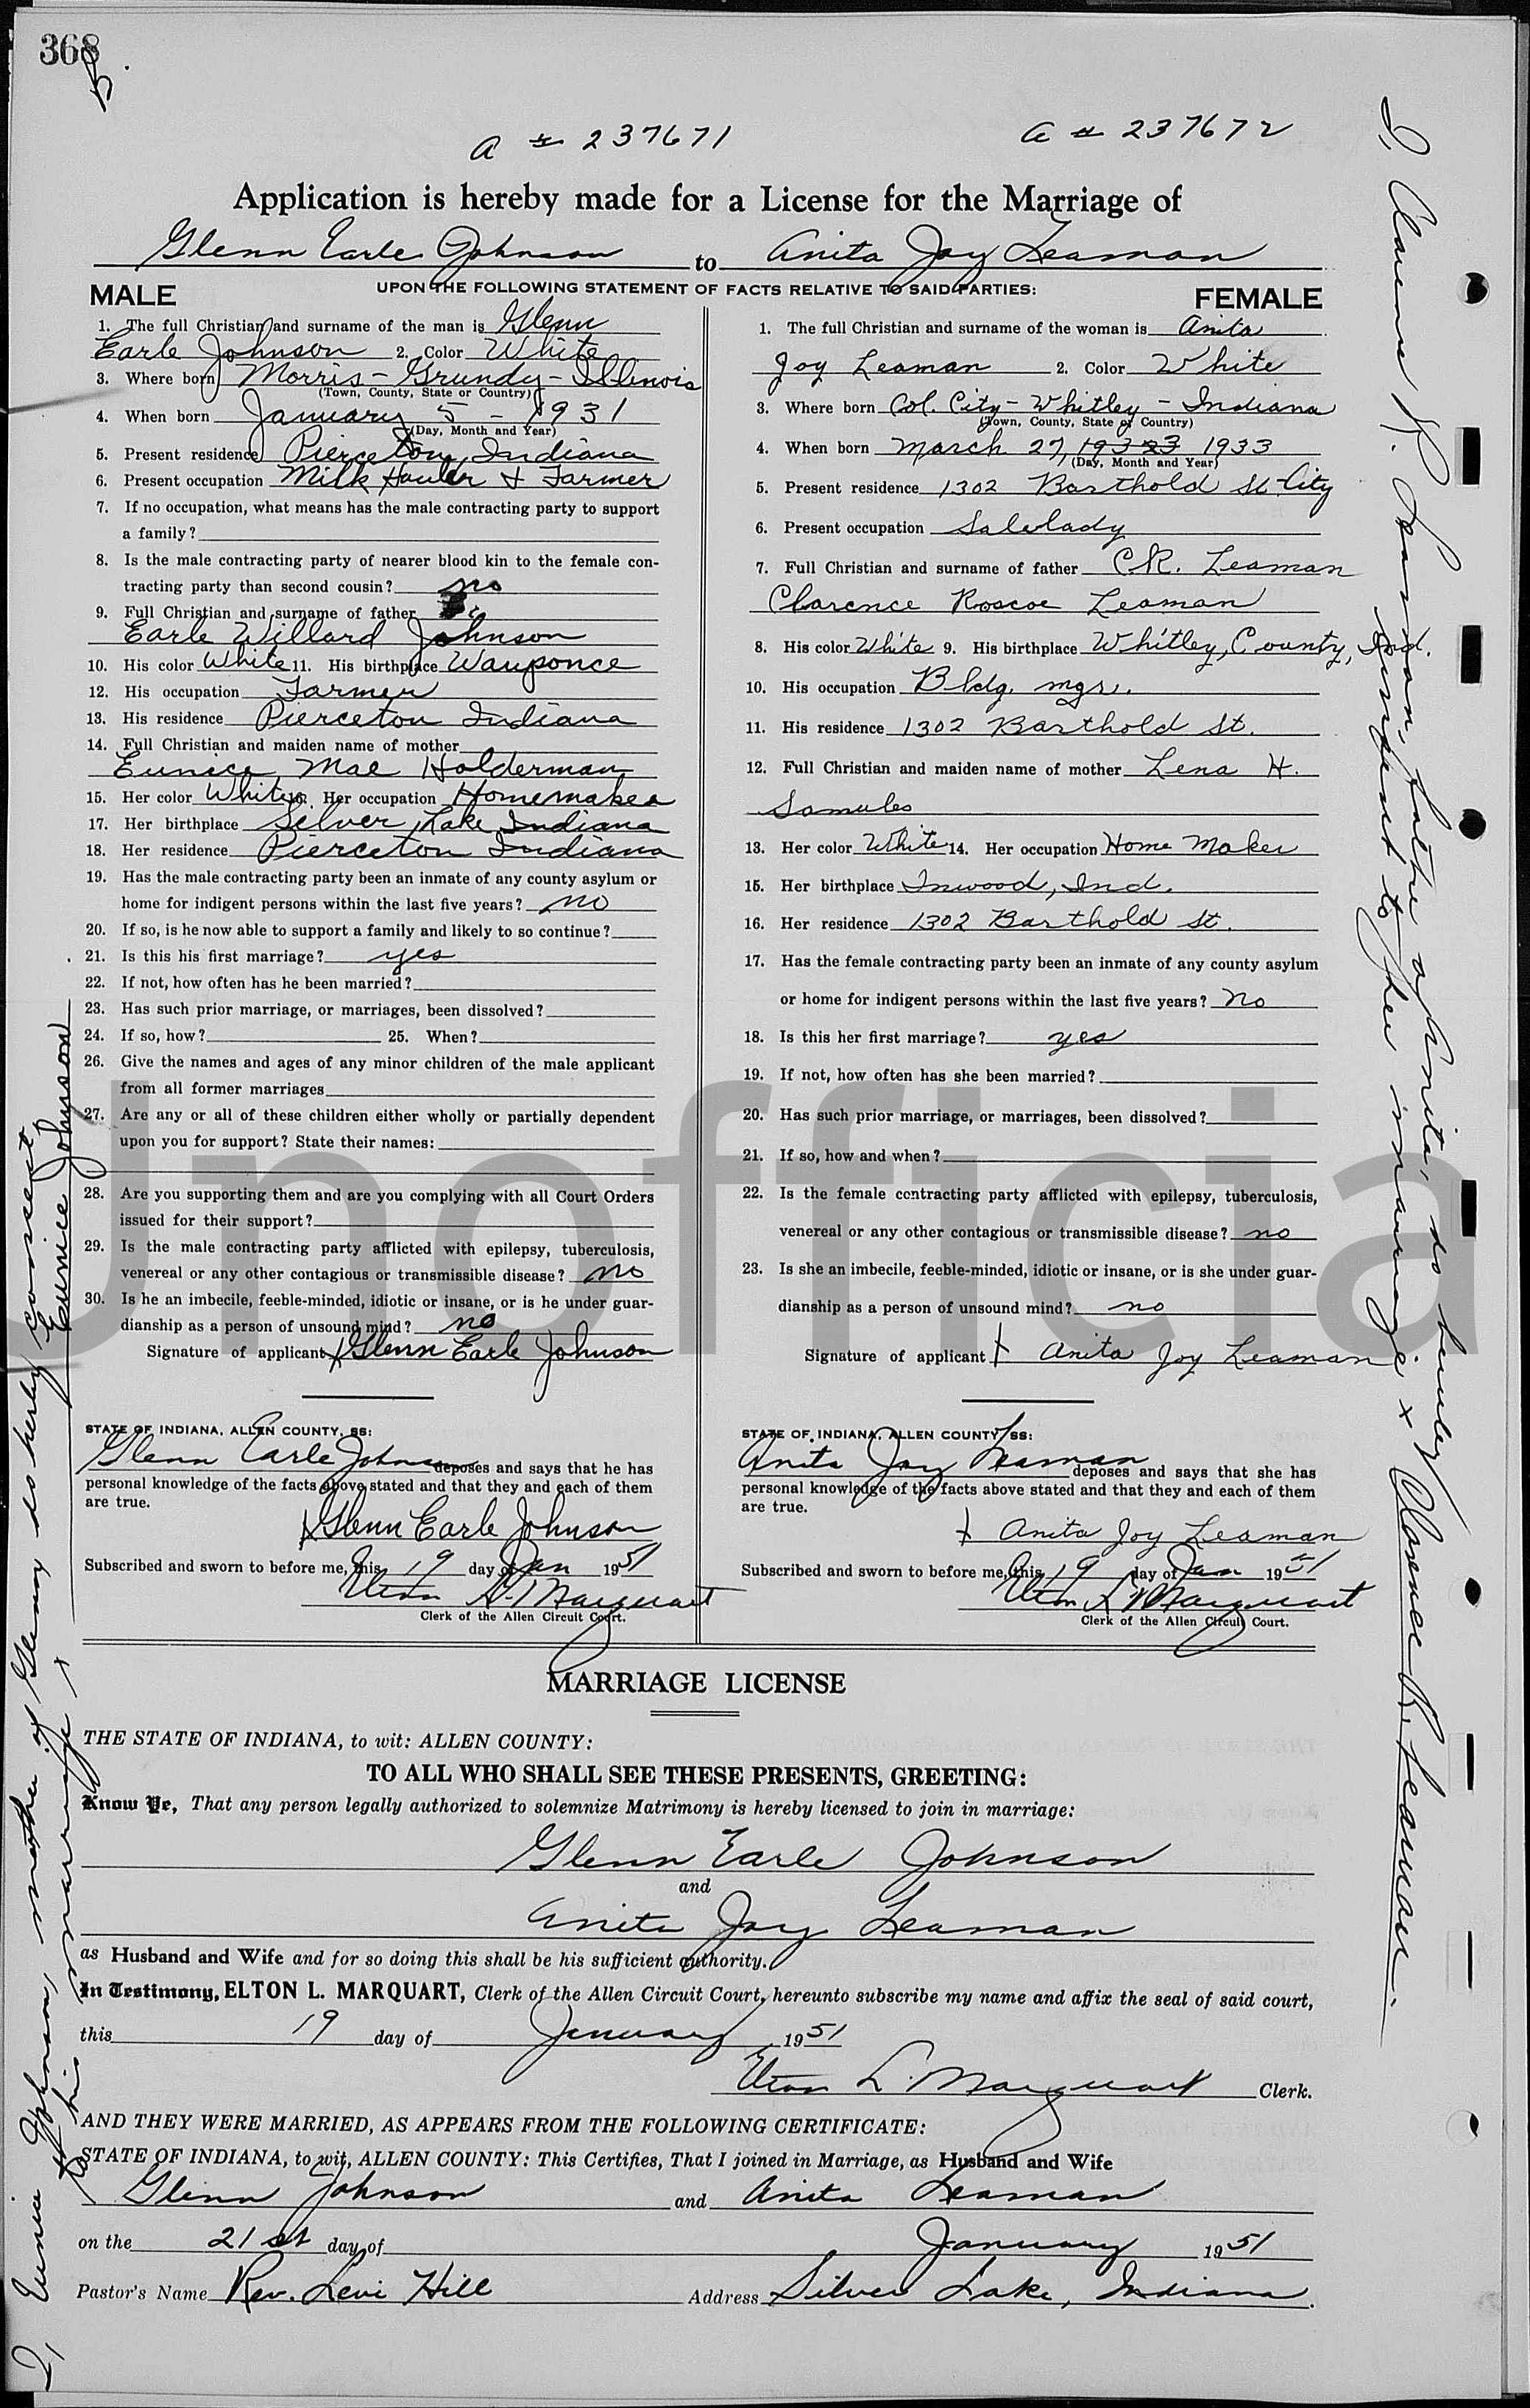 368
a # 237671
a # 237672
Application is hereby made for a License for the Marriage of
Glenn Earle Johnson to Anita Joy Leaman
UPON THE FOLLOWING STATEMENT OF FACTS RELATIVE TO SAID PARTIES:
MALE
1. The full Christian and surname of the man is Glenn
Earle Johnson 2. Color White
3. Where born Morris - Grundy - Illinois
(Town, County, State or Country)
4. When born January 5 - 1931
(Day, Month and Year)
5. Present residence Pierceton, Indiana
6. Present occupation Milk Hauler & Farmer
7. If no occupation, what means has the male contracting party to support
a family?
8. Is the male contracting party of nearer blood kin to the female con-
tracting party than second cousin? no
9. Full Christian and surname of father
Earle Willard Johnson
10. His color White 11. His birthplace Wauponce
12. His occupation Farmer
13. His residence Pierceton Indiana
14. Full Christian and maiden name of mother
Eunice Mae Holderman
15. Her color White 16. Her occupation Homemaker
17. Her birthplace Silver Lake Indiana
18. Her residence Pierceton Indiana
19. Has the male contracting party been an inmate of any county asylum or
home for indigent persons within the last five years? no
20. If so, is he now able to support a family and likely to so continue?
21. Is this his first marriage? yes
22. If not, how often has he been married?
23. Has such prior marriage, or marriages, been dissolved?
24. If so, how? 25. When?
26. Give the names and ages of any minor children of the male applicant
from all former marriages
27. Are any or all of these children either wholly or partially dependent
upon you for support? State their names:
28. Are you supporting them and are you complying with all Court Orders
issued for their support?
29. Is the male contracting party afflicted with epilepsy, tuberculosis,
venereal or any other contagious or transmissible disease? no
30. Is he an imbecile, feeble-minded, idiotic or insane, or is he under guar-
dianship as a person of unsound mind? no
Signature of applicant x Glenn Earle Johnson
STATE OF INDIANA, ALLEN COUNTY, SS:
Glenn Earle Johnson deposes and says that he has
personal knowledge of the facts above stated and that they and each of them
are true.
x Glenn Earle Johnson
Subscribed and sworn to before me, this 19 day of Jan 1951
Elton L. Marquart
Clerk of the Allen Circuit Court.
FEMALE
1. The full Christian and surname of the woman is Anita
Joy Leaman 2. Color White
3. Where born Col. City - Whitley - Indiana
(Town, County, State or Country)
4. When born March 27, 193323 1933
(Day, Month and Year)
5. Present residence 1302 Barthold St. City
6. Present occupation Saleslady
7. Full Christian and surname of father C.R. Leaman
Clarence Roscoe Leaman
8. His color White 9. His birthplace Whitley, County, Ind.
10. His occupation Bldg. mgr.
11. His residence 1302 Barthold St.
12. Full Christian and maiden name of mother Lena H.
Samules
13. Her color White 14. Her occupation Home Maker
15. Her birthplace Inwood, Ind.
16. Her residence 1302 Barthold St.
17. Has the female contracting party been an inmate of any county asylum
or home for indigent persons within the last five years? no
18. Is this her first marriage? yes
19. If not, how often has she been married?
20. Has such prior marriage, or marriages, been dissolved?
21. If so, how and when?
22. Is the female contracting party afflicted with epilepsy, tuberculosis,
venereal or any other contagious or transmissible disease? no
23. Is she an imbecile, feeble-minded, idiotic or insane, or is she under guar-
dianship as a person of unsound mind? no
Signature of applicant x Anita Joy Leaman
STATE OF INDIANA, ALLEN COUNTY, SS:
Anita Joy Leaman deposes and says that she has
personal knowledge of the facts above stated and that they and each of them
are true.
x Anita Joy Leaman
Subscribed and sworn to before me, this 19 day of Jan 1951
Elton L Marquart
Clerk of the Allen Circuit Court.
MARRIAGE LICENSE
THE STATE OF INDIANA, to wit: ALLEN COUNTY:
TO ALL WHO SHALL SEE THESE PRESENTS, GREETING:
Know Ye, That any person legally authorized to solemnize Matrimony is hereby licensed to join in marriage:
Glenn Earle Johnson
and
Anita Joy Leaman
as Husband and Wife and for so doing this shall be his sufficient authority.
In Testimony, ELTON L. MARQUART, Clerk of the Allen Circuit Court, hereunto subscribe my name and affix the seal of said court,
this 19 day of January 1951
Elton L. Marquart Clerk.
AND THEY WERE MARRIED, AS APPEARS FROM THE FOLLOWING CERTIFICATE:
STATE OF INDIANA, to wit, ALLEN COUNTY: This Certifies, That I joined in Marriage, as Husband and Wife
Glenn Johnson and Anita Leaman
on the 21 st day of January 1951
Pastor's Name Rev. Levi Hill Address Silver Lake, Indiana.
I, Eunice Johnson, mother of Glenn, do herby consent
to his marriage x Eunice Johnson
I, Clarence R. Leaman, father of Anita, do hereby
consent to her marriage x Clarence R. Leaman.
Unofficial